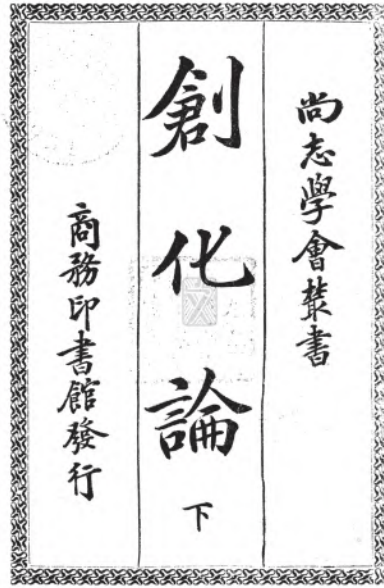 尚志學會叢書
創化論 下
商務印書館發行